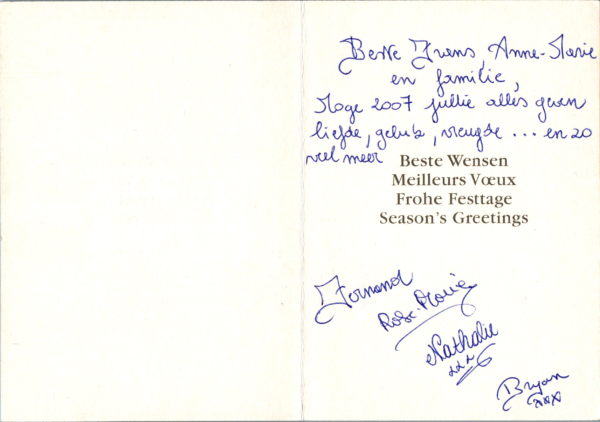 Beste Irens, Anne-Marie
en familie,
Moge 2007 jullie alles geven
liefde, geluk, vreugde ... en zo
veel meer
Beste Wensen
Meilleurs Vœux
Frohe Festtage
Season's Greetings
Fernand
Rose-Marie
Nathalie
xxx
Bryan
xxx